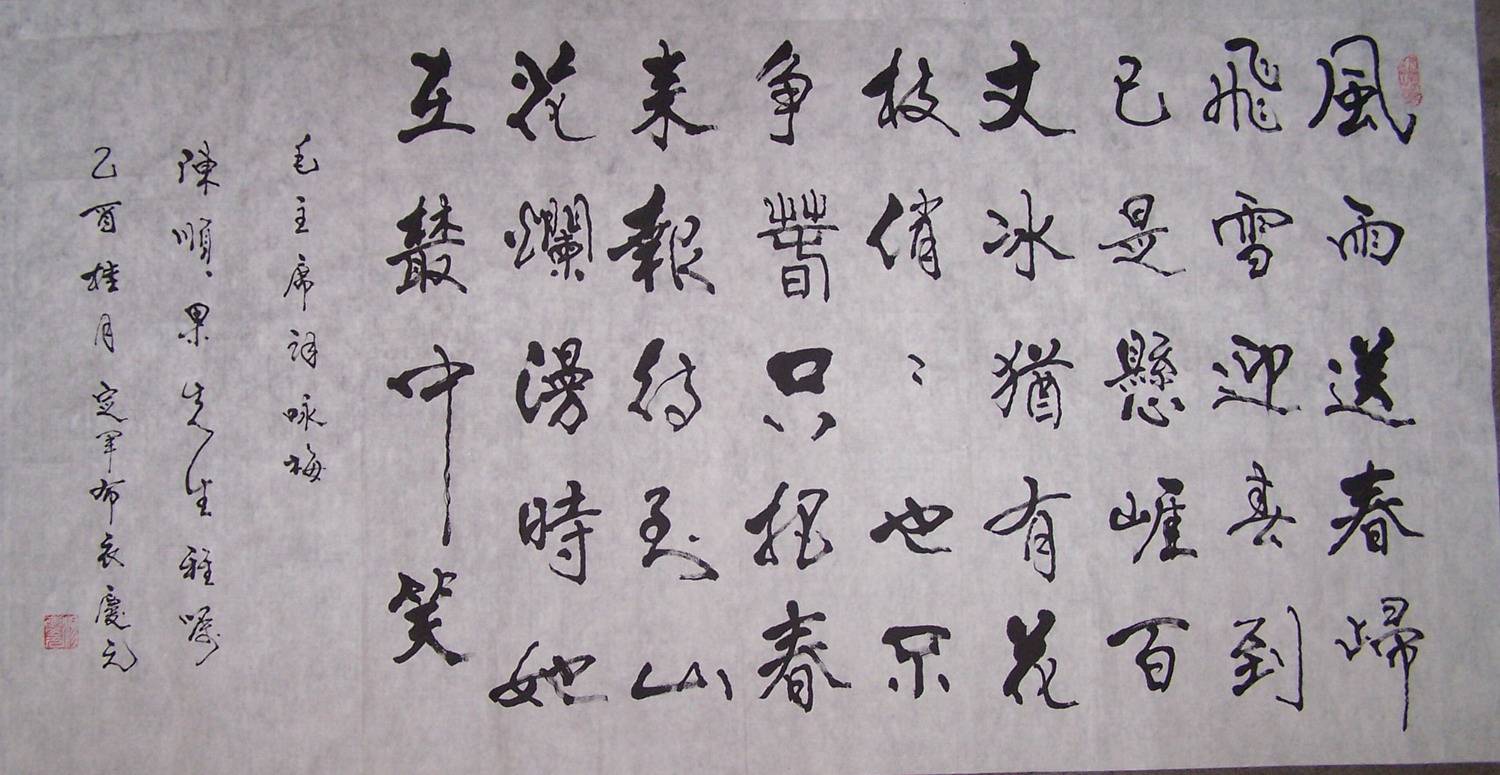 風雨送春歸
飛雪迎春到
已是懸崖百
丈冰猶有花
枝俏〻也不
争春只把春
来報待到山
花爛漫時她
在叢中笑
毛主席詞咏梅
陳順〻果先生雅嘱
乙酉桂月定軍布衣慶元